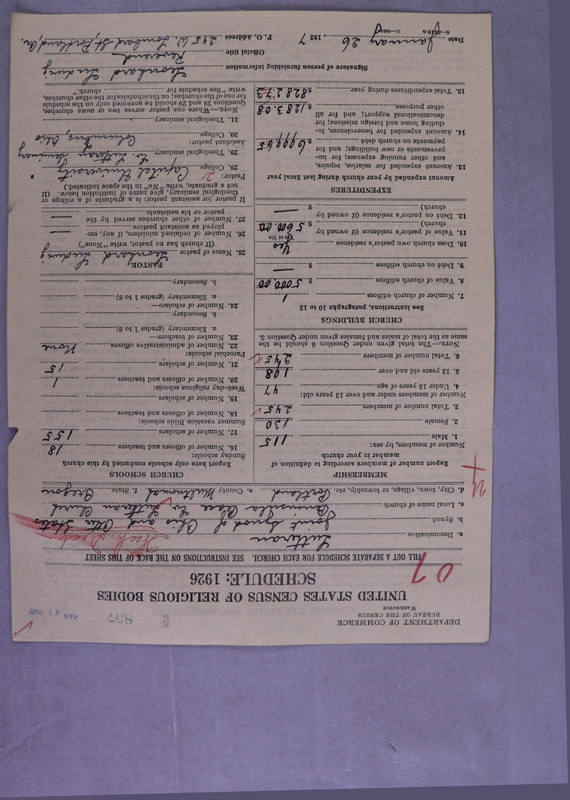 DEPARTMENT OF COMMERCE
BUREAU OF THE CENSUS
WASHINGTON
837
UNITED STATES CENSUS OF RELIGIOUS BODIES
SCHEDULE: 1926
07
FILL OUT A SEPARATE SCHEDULE FOR EACH CHURCH. SEE INSTRUCTIONS ON THE BACK OF THIS SHEET
a. Denomination Lutheran
b. Synod Joint Synod of Ohio and Other States
c. Local name of church Peninsula Place Ev Lutheran Church
d. City, town, village, or township, etc. Portland e. County Multnomah f. State Oregon
MEMBERSHIP
Report number of members according to definition of
member in your church
Number of members, by sex:
1. Male 115
2. Female 130
3. Total number of members 245
Number of members under and over 13 years old:
4. Under 13 years of age 47
5. 13 years old and over 198
6. Total number of members 245
NOTE.—The total given under Question 6 should be the
same as the total of males and females given under Question 3.
CHURCH BUILDINGS
See instructions, paragraphs 10 to 12
7. Number of church edifices 1
8. Value of church edifices $ 5000.00
9. Debt on church edifices $ —
10. Does church own pastor's residence Yes
(Yes or No)
11. Value of pastor's residence (if owned by
church) $ 5600.00
12. Debt on pastor's residence (if owned by
church) $ —
EXPENDITURES
Amount expended by your church during last fiscal year
13. Amount expended for salaries, repairs,
and other running expenses; for im-
provements or new buildings; and for
payments on church debt $ 6999.65
14. Amount expended for benevolences, in-
cluding home and foreign missions; for
denominational support; and for all
other purposes $ 1283.08
15. Total expenditures during year $ 8282.73
CHURCH SCHOOLS
Report here only schools conducted by this church
Sunday schools:
16. Number of officers and teachers 18
17. Number of scholars 155
Summer vacation Bible schools:
18. Number of officers and teachers
19. Number of scholars
Week-day religious schools:
20. Number of officers and teachers 1
21. Number of scholars 15
Parochial schools:
22. Number of administrative officers none
23. Number of teachers—
a. Elementary (grades 1 to 8)
b. Secondary
24. Number of scholars—
a. Elementary (grades 1 to 8)
b. Secondary
PASTOR
25. Name of pastor Leonhard Ludwig
(If church has no pastor, write "None")
26. Number of ordained ministers, if any, em-
ployed as assistant pastors —
27. Number of other churches served by the
pastor or his assistants —
If pastor (or assistant pastor) is a graduate of a college or
theological seminary, give name of institution below. (If
not a graduate, write "No" in the space indicated.)
Pastor:
28. College Capital University
29. Theological seminary Ev Lutheran Seminary
Columbus, Ohio
Assistant pastor:
30. College
31. Theological seminary
NOTE.—Where one pastor serves two or more churches,
Questions 25 and 28 should be answered only on the schedule
for one of the churches; on the schedules for the other churches,
write "See schedule for church."
Signature of person furnishing information Leonhard Ludwig
Official title Reverend
Date January 26 1927 P. O. Address 245 W. Lombard St, Portland, Or.